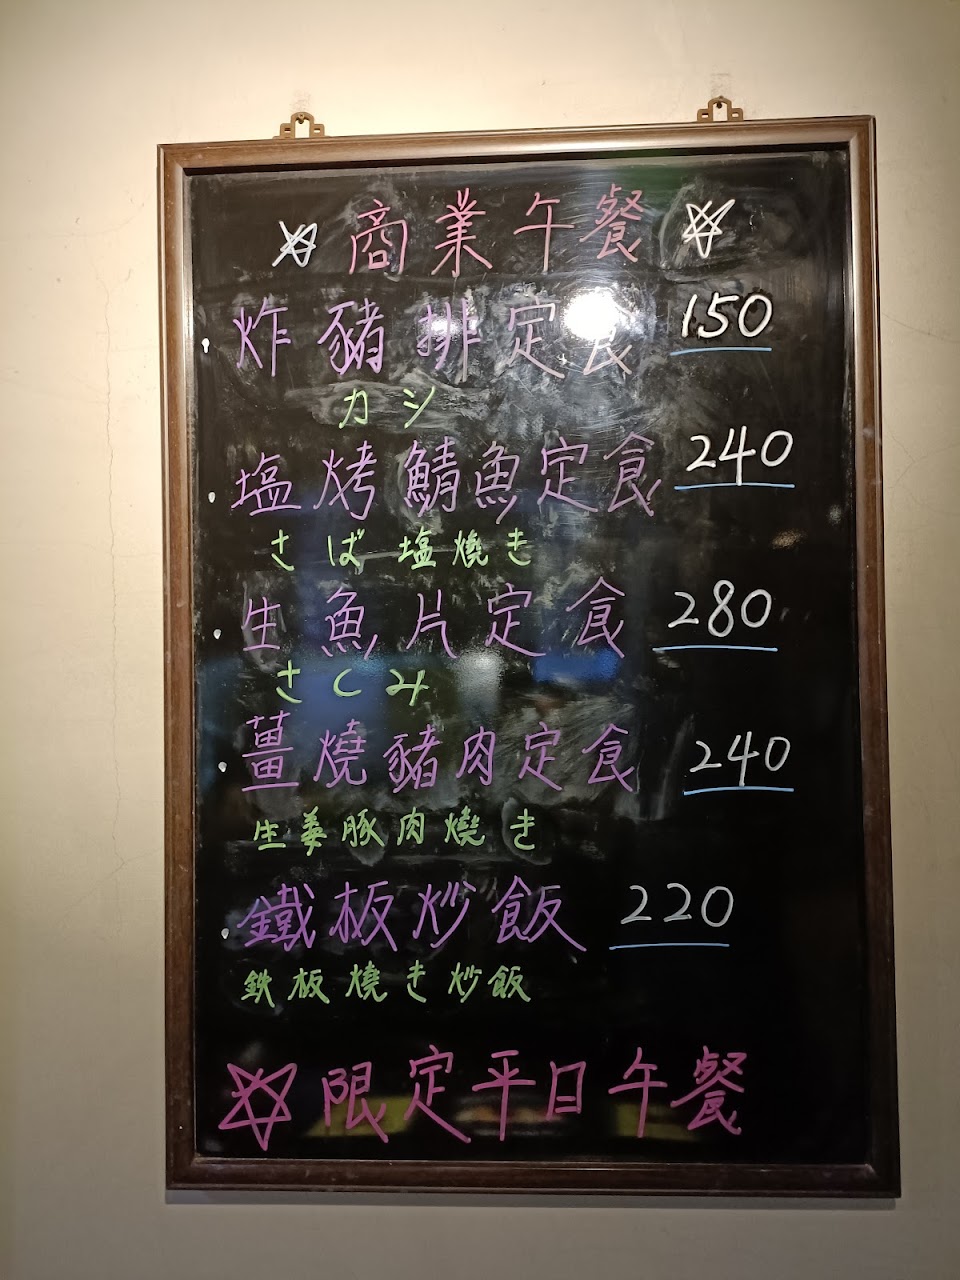 商業午餐
炸豬排定食 150
カシ
塩烤鯖魚定食 240
さば塩燒き
生魚片定食 280
さくみ
薑燒豬肉定食 240
生姜豚肉燒き
鐵板炒飯 220
鉄板燒き炒飯
限定平日午餐